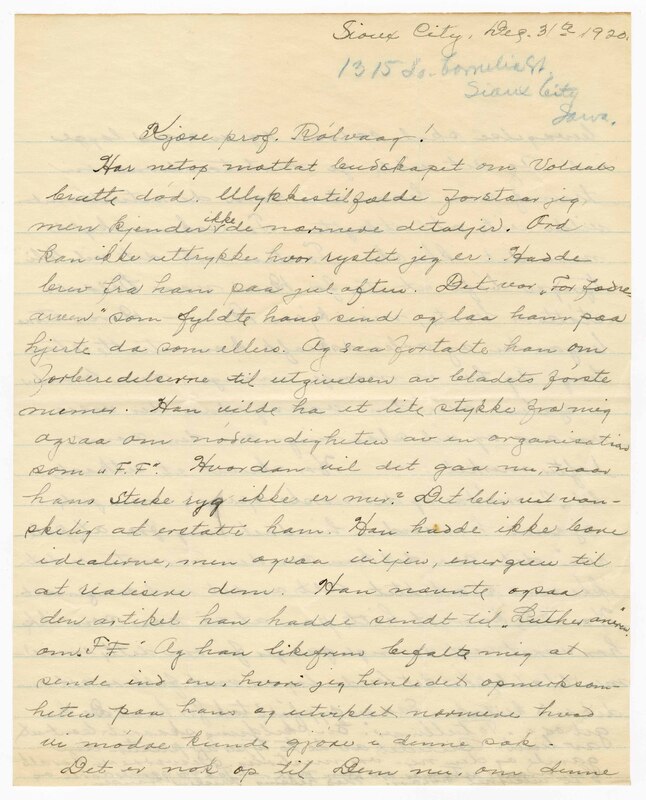 Sioux City, Dec. 31te 1920.
1315 So. Cornelia St,
Sioux City
Iowa.
Kjære prof. Rølvaag!
Har netop mottat budskapet om Voldals
bratte død. Ulykkestilfælde forstaar jeg
men kjender ikke de nærmere detaljer. Ord
kan ikke uttrykke hvor rystet jeg er. Hadde
brev fra ham paa jul aften. Det var "For fædre-
arven" som fyldte hans sind og laa ham paa
hjerte da som ellers. Og saa fortalte han om
forberedelserne til utgivelsen av bladets første
nummer. Han vilde ha et lite stykke fra mig
ogsaa om nødvendigheten av en organisation
som "F.F". Hvordan vil det gaa nu, naar
hans sterke ryg ikke er mer? Det blir vel van-
skelig at erstatte ham. Han hadde ikke bare
idealerne, men ogsaa viljen, energien til
at realisere dem. Han nævnte ogsaa
den artikel han hadde sendt til "Lutheraneren"
om "F F" Og han likefrem befalte mig at
sende ind en, hvori jeg henledet opmerksom-
heten paa hans og utviklet nærmere hvad
vi mødre kunde gjøre i denne sak.
Det er nok op til Dem nu, om denne